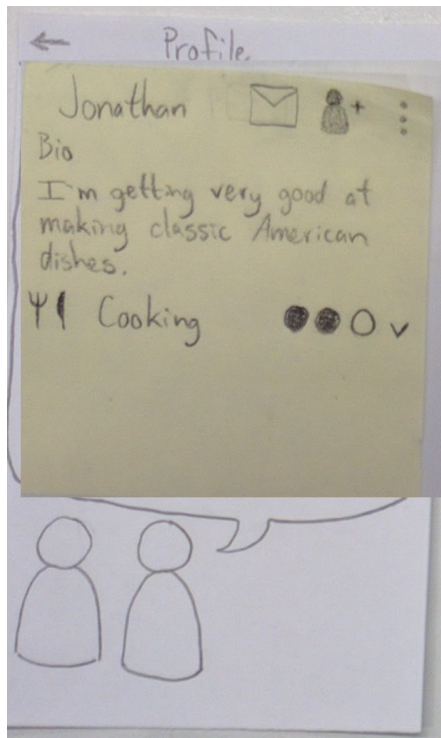 Profile
Jonathan
Bio
I'm getting very good at
making classic American
dishes.
Cooking